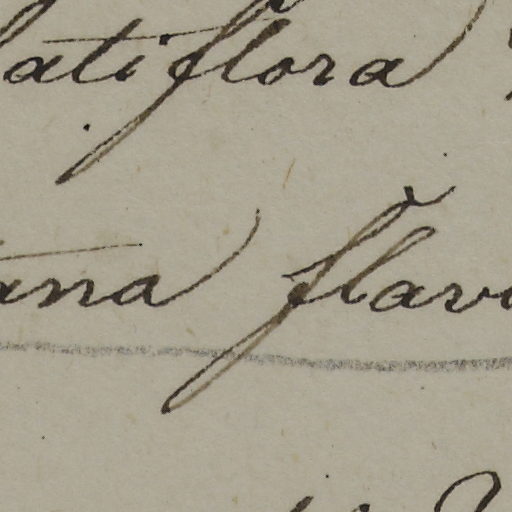 latiflora
ana flava